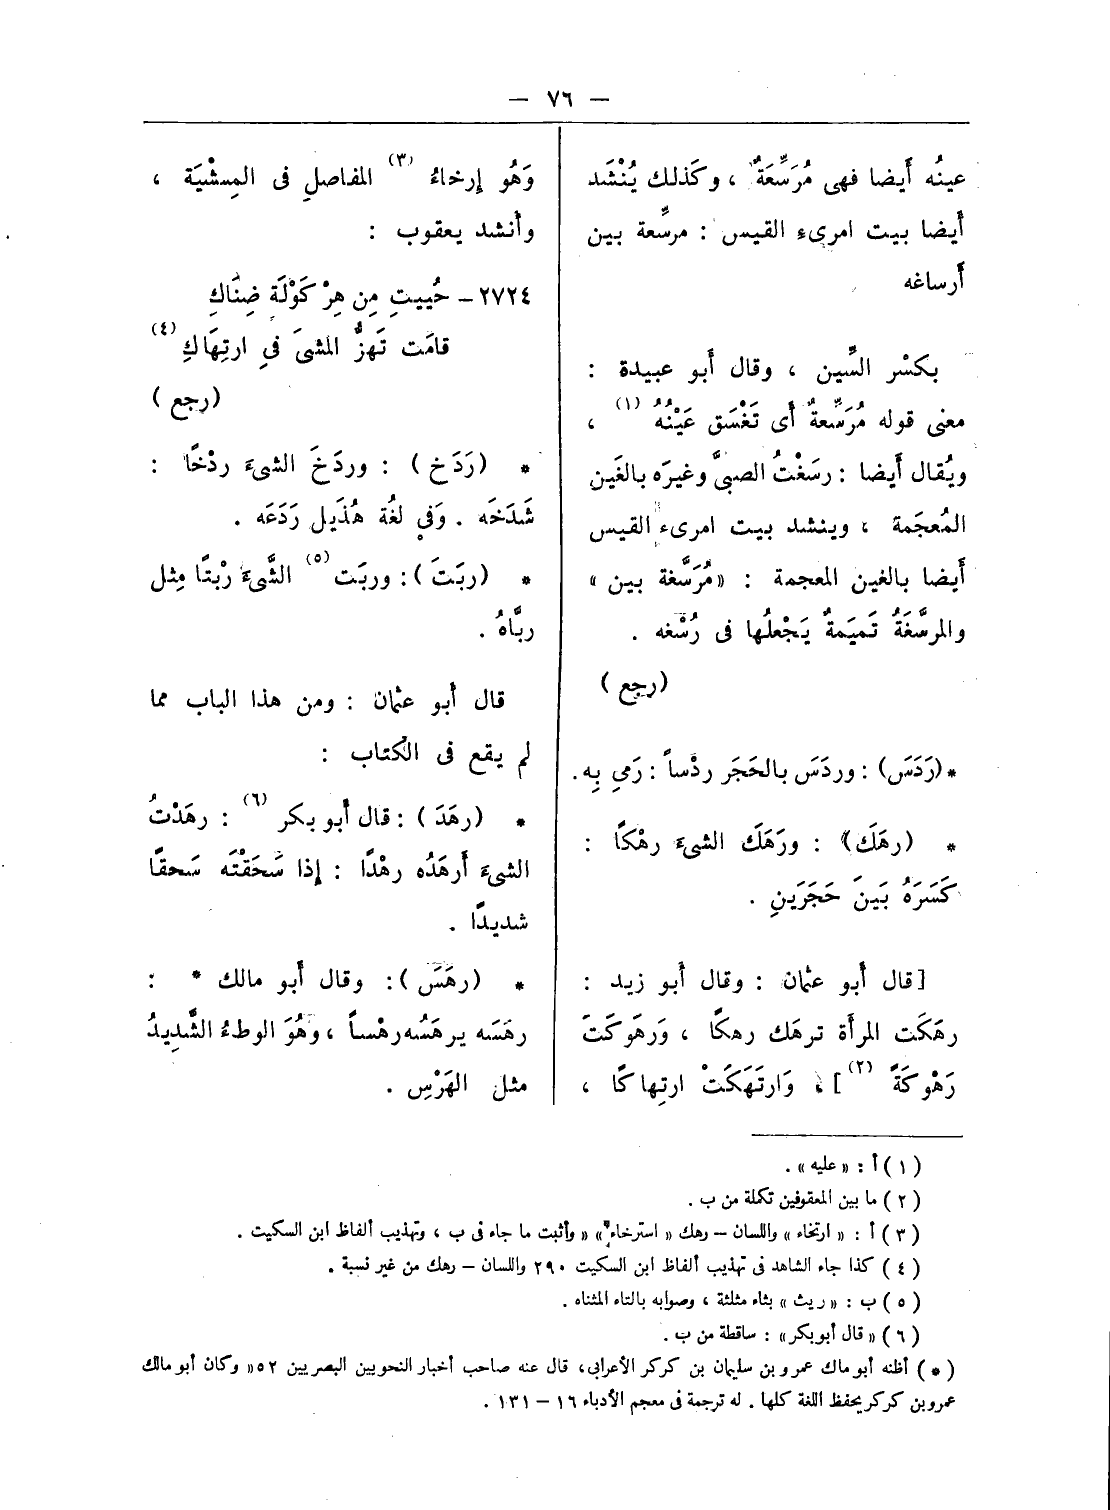 — ٧٦ —
عينُه أَيضا فهى مُرَسِّعَةٌ ، وكَذلك يُنْشَد
أَيضا بيت امرىء القيس : مرسِّعة بين
أَرساغه
بكسْر السِّين ، وقال أَبو عبيدة :
معنى قوله مُرَسِّعةٌ أَى تَغْسَق عَيْنُهُ (١) ،
ويُقال أَيضا : رسَغْتُ الصبىَّ وغيرَه بالغَين
المُعجَمة ، وينشد بيت امرىء القيس
أَيضا بالغين المعجمة : «مُرَسَّغة بين»
والمرسَّغَةُ تَميَمةٌ يَجْعلُها فى رُسْغه .
(رجع)
*(رَدَسَ) : وردَسَ بالحَجَر ردْساً : رَمىِ بِه.
* (رهَكَ) : ورَهَكَ الشىءَ رهْكًا :
كَسَرَهُ بَينَ حَجَرَينِ .
[قال أَبو عثمان : وقال أَبو زيد :
رهَكَت المرأة ترهَك رهكًا ، وَرهَوكَتَ
رَهْوكَةً (٢)] ، وَارتَهَكَتْ ارتِهاكًا ،
وَهُو إِرخاءُ (٣) المفاصلِ فى المِشْيَة ،
وأَنشد يعقوب :
٢٧٢٤ – حُييتِ مِن هِرْ كَوْلَةٍ ضِنَاكِ
قامَت تَهزُّ المشىَ فىِ ارتِهَاكِ (٤)
(رجع)
* (رَدَخ) : وردَخَ الشىءَ ردْخًا :
شَدَخَه . وَفىِ لغُة هُذَيل رَدَعَه .
* (ربَتَ) : وربَت (٥) الشَّىءَ رْبتًا مِثل
ربَّاهُ .
قال أَبو عثمان : ومن هذا الباب مما
لم يقع فى الكتاب :
* (رهَدَ) : قال أَبو بكر (٦) : رهَدْتُ
الشىءَ أَرهَدُه رهْدًا : إِذا سَحَقْتَه سَحقًا
شديدًا .
* (رهَسَ) : وقال أَبو مالك * :
رهَسَه يرهَسُه رهْساً ، وهُوَ الوطءُ الشَّدِيدُ
مثل الهَرْسِ .
(١) أ : «عليه» .
(٢) ما بين المعقوفين تكملة من ب .
(٣) أ : «ارتخاء» واللسان – رهك «استرخاء» «وأثبت ما جاء فى ب ، وتهذيب ألفاظ ابن السكيت .
(٤) كذا جاء الشاهد فى تهذيب ألفاظ ابن السكيت ٢٩٠ واللسان – رهك من غير نسبة .
(٥) ب : «ريث» بثاء مثلثة ، وصوابه بالتاء المثناه .
(٦) «قال أبو بكر» : ساقطة من ب .
(*) أظنه أبو ماك عمرو بن سليمان بن كركر الأعرابى، قال عنه صاحب أخبار النحويين البصريين ٥٢» وكان أبو مالك
عمرو بن كركر يحفظ اللغة كلها . له ترجمة فى معجم الأدباء ١٦ – ١٣١ .